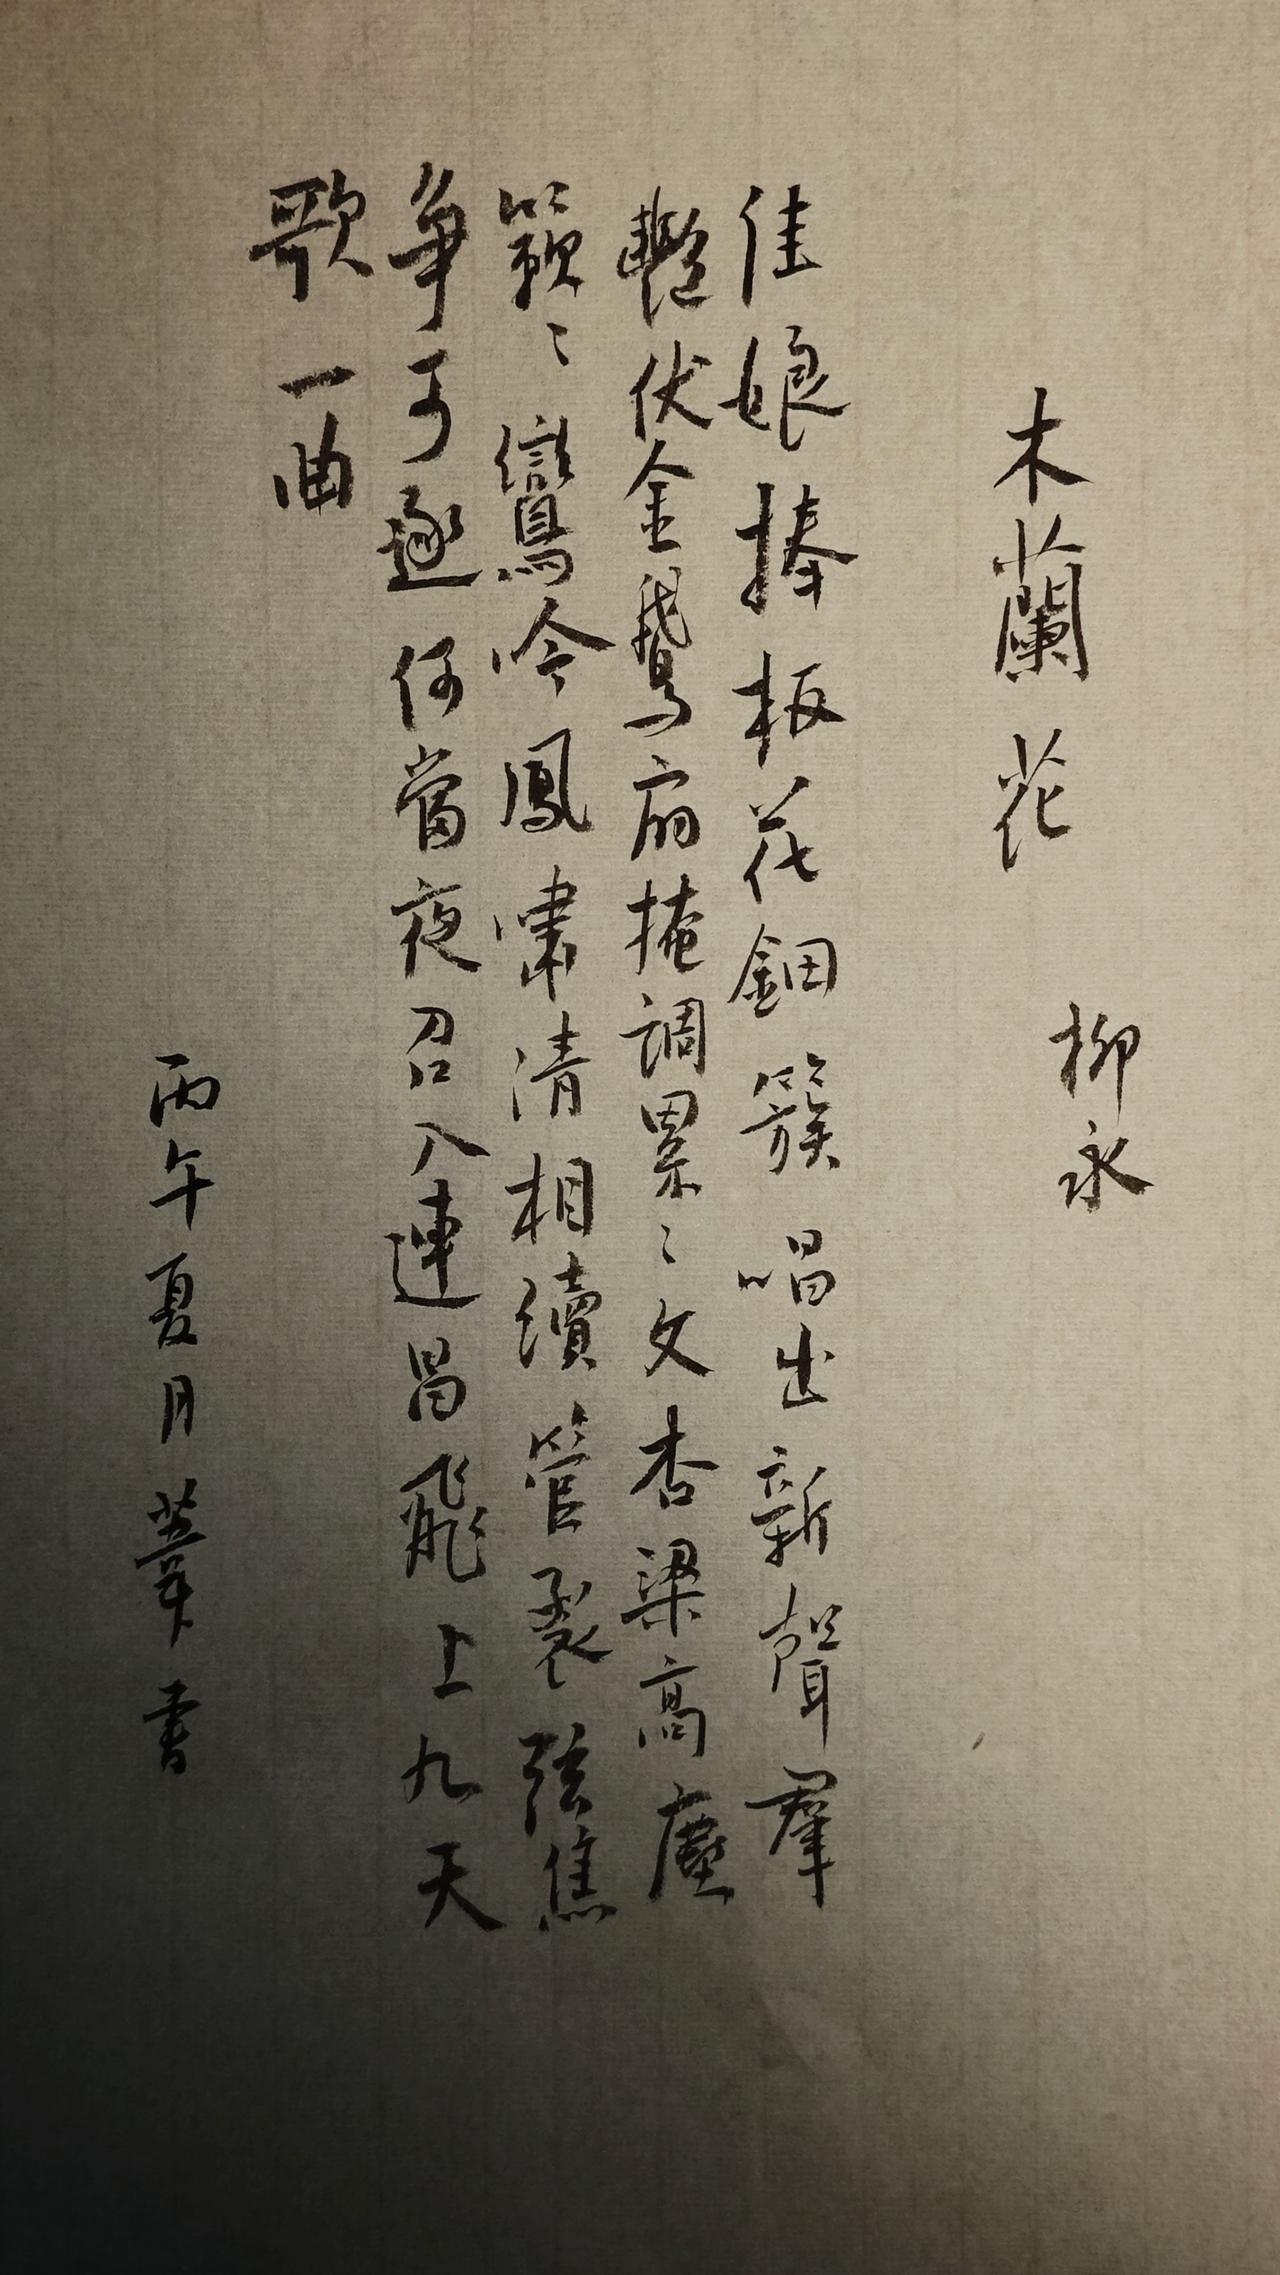 木蘭花
柳永
佳娘捧板花鈿簇唱出新聲羣
豔伏金鵝扇掩調累〻文杏梁高塵
簌〻鸞吟鳳嘯清相續管裂弦焦
爭可逐何當夜召入連昌飛上九天
歌一曲
丙午夏月葦書